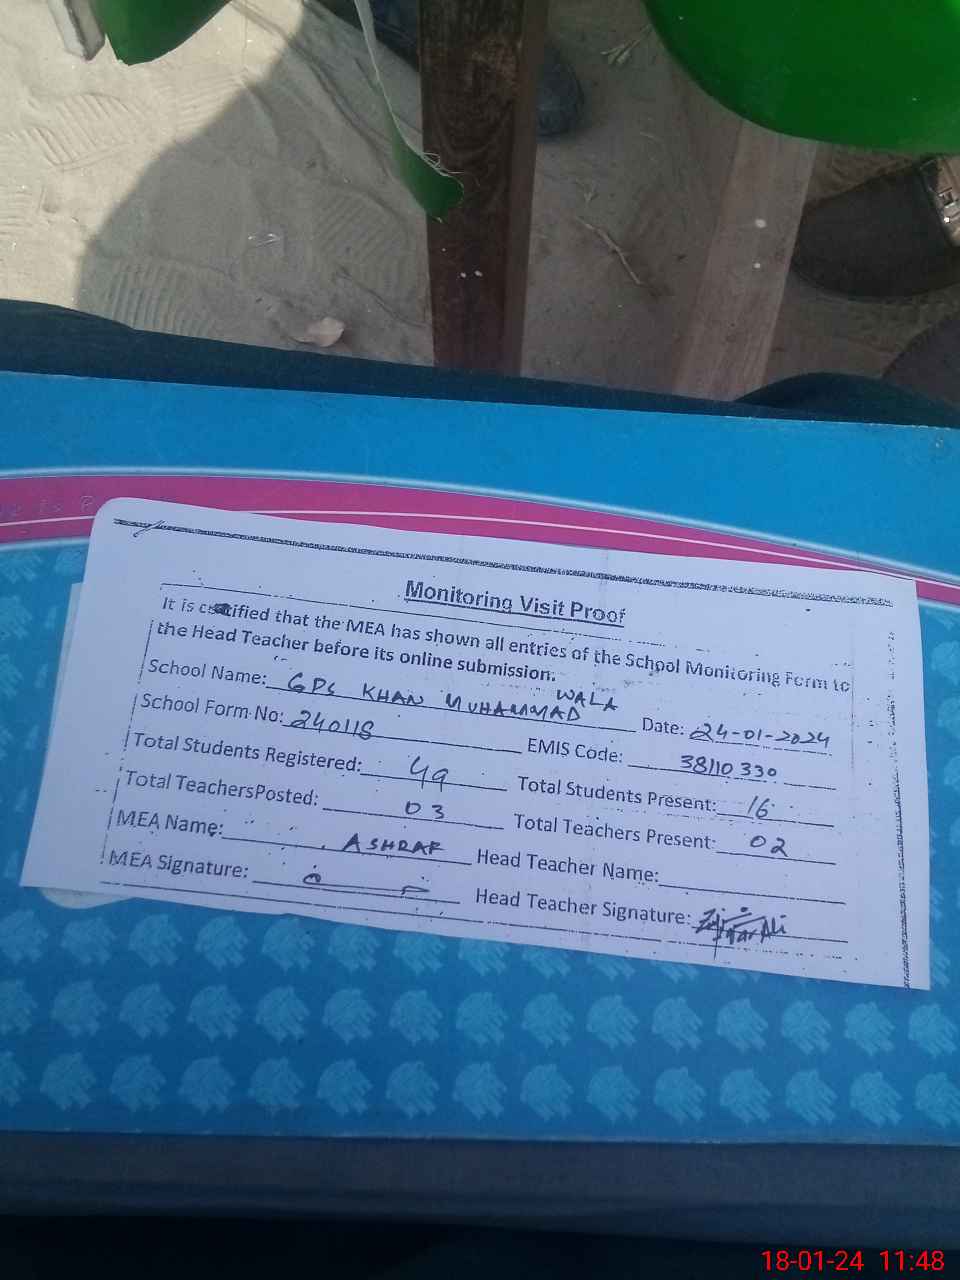 Monitoring Visit Proof
It is certified that the MEA has shown all entries of the School Monitoring Form to
the Head Teacher before its online submission.
School Name: GPS KHAN MUHAMMAD WALA Date: 24-01-2024
School Form No: 240118 EMIS Code: 38110330
Total Students Registered: 49 Total Students Present: 16
Total TeachersPosted: 03 Total Teachers Present: 02
MEA Name: ASHRAF Head Teacher Name:
MEA Signature: Head Teacher Signature: Ali
18-01-24 11:48